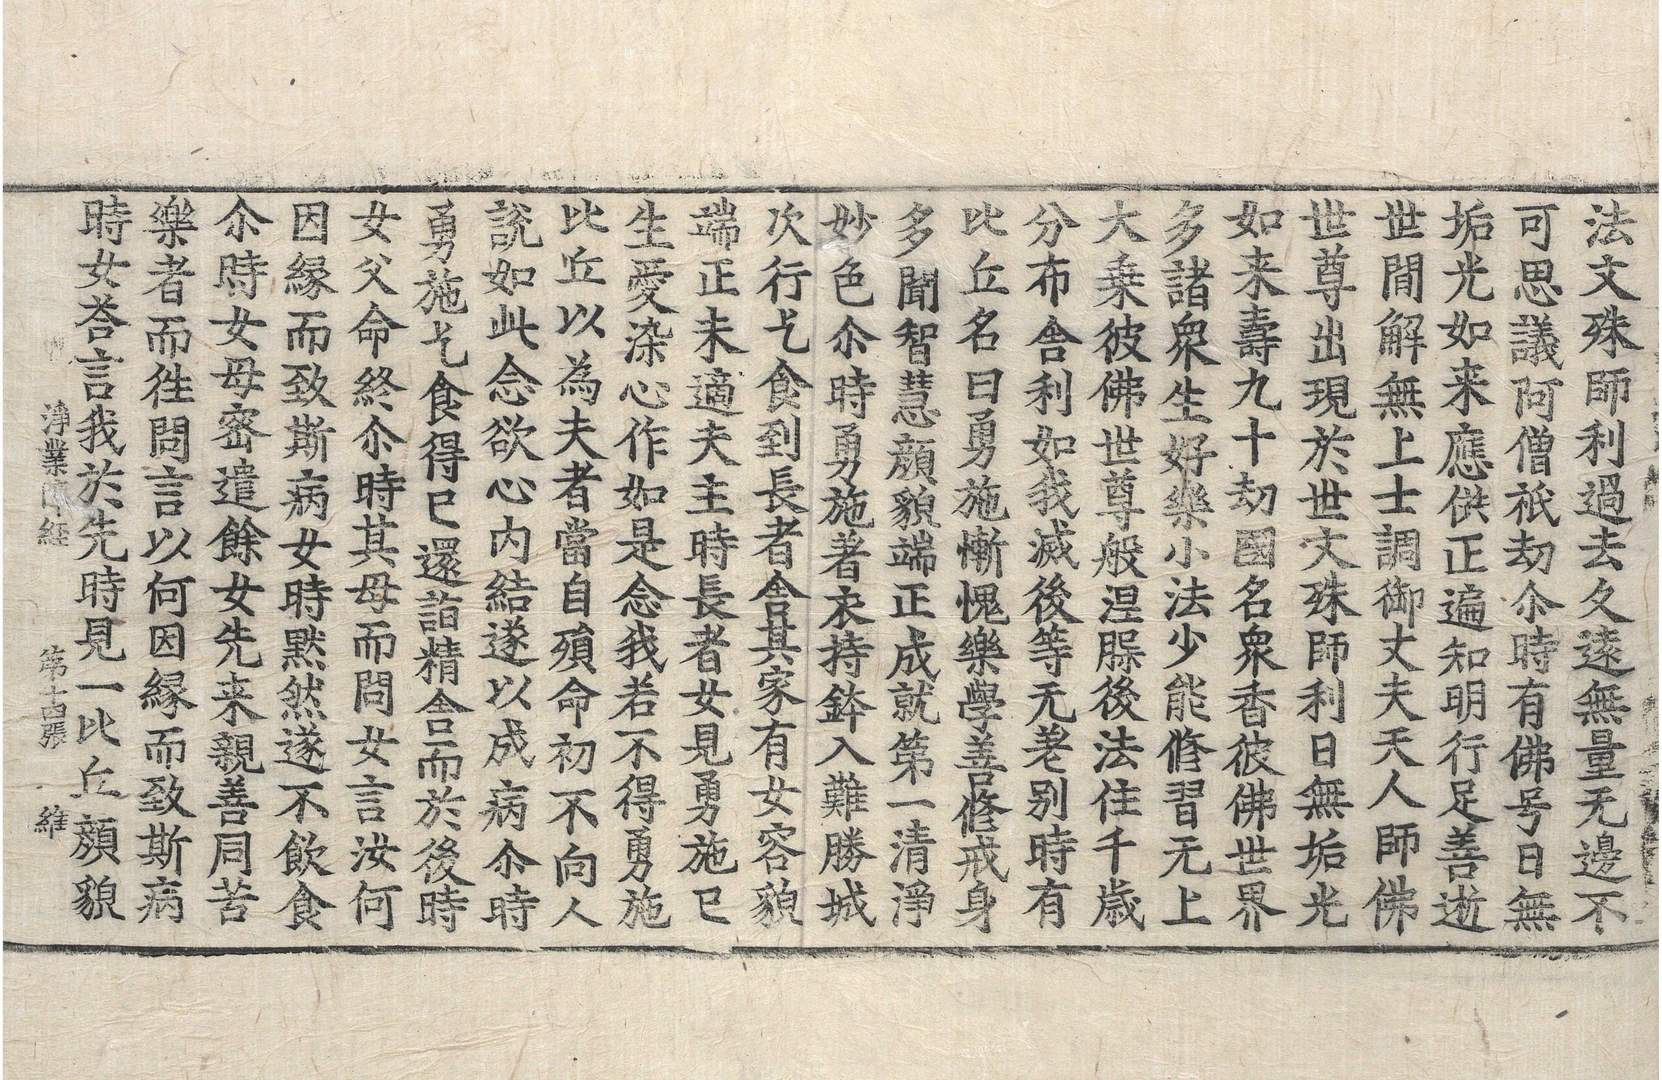 法文殊師利過去久遠無量无邊不
可思議阿僧祇劫尒時有佛号曰無
垢光如来應供正遍知明行足善逝
世間解無上士調御丈夫天人師佛
世尊出現於世文殊師利日無垢光
如来壽九十劫國名衆香彼佛世界
多諸衆生好樂小法少能修習无上
大乗彼佛世尊般涅槃後法住千歳
分布舎利如我滅後等无差别時有
比丘名曰勇施慚愧樂學善修戒身
多聞智慧顔貌端正成就第一清淨
妙色尒時勇施著衣持鉢入難勝城
次行乞食到長者舎其家有女容貌
端正未適夫主時長者女見勇施已
生愛染心作如是念我若不得勇施
比丘以為夫者當自殞命初不向人
說如此念欲心内結遂以成病尒時
勇施乞食得已還詣精舎而於後時
女父命終尒時其母而問女言汝何
因縁而致斯病女時默然遂不飲食
尒時女母密遣餘女先来親善同苦
樂者而徃問言以何因縁而致斯病
時女荅言我於先時見一比丘顔貌
淨業障經 第十四張 維